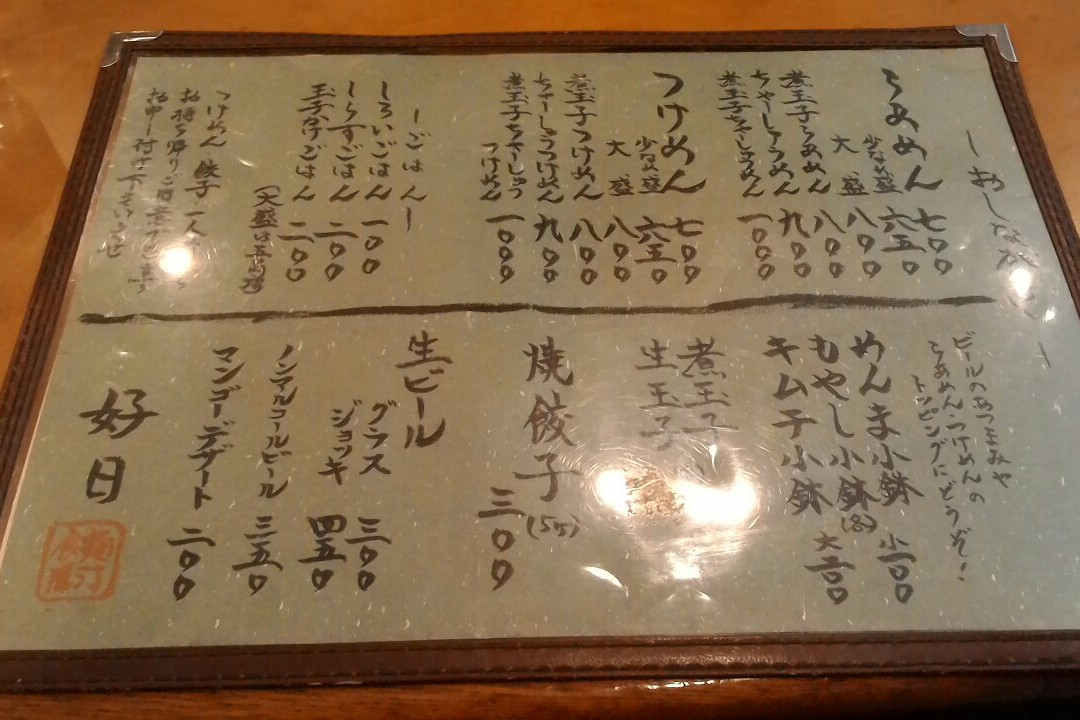 ーおしながきー
らあめん 七〇〇
少なめ盛 六五〇
大盛 八〇〇
煮玉子らあめん 八〇〇
ちゃーしゅうめん 九〇〇
煮玉子ちゃーしゅうめん 一〇〇〇
つけめん 七〇〇
少なめ盛 六五〇
大盛 八〇〇
煮玉子つけめん 八〇〇
ちゃーしゅうつけめん 九〇〇
煮玉子ちゃーしゅう
つけめん 一〇〇〇
ーごはんー
しろいごはん 一〇〇
しらすごはん 二〇〇
玉子かけごはん 二〇〇
(大盛は五拾増
つけめん 餃子 一人
お持ち帰り
お申し付け下さいませ
ビールのおつまみや
らあめん・つけめんの
トッピングにどうぞ!
めんま小鉢 小一〇〇
もやし小鉢
キムチ小鉢 大二〇〇
煮玉子
生玉子
焼餃子(5ケ) 三〇〇
生ビール
グラス 三〇〇
ジョッキ 四五〇
ノンアルコールビール 三五〇
マンゴーデザート 二〇〇
好日